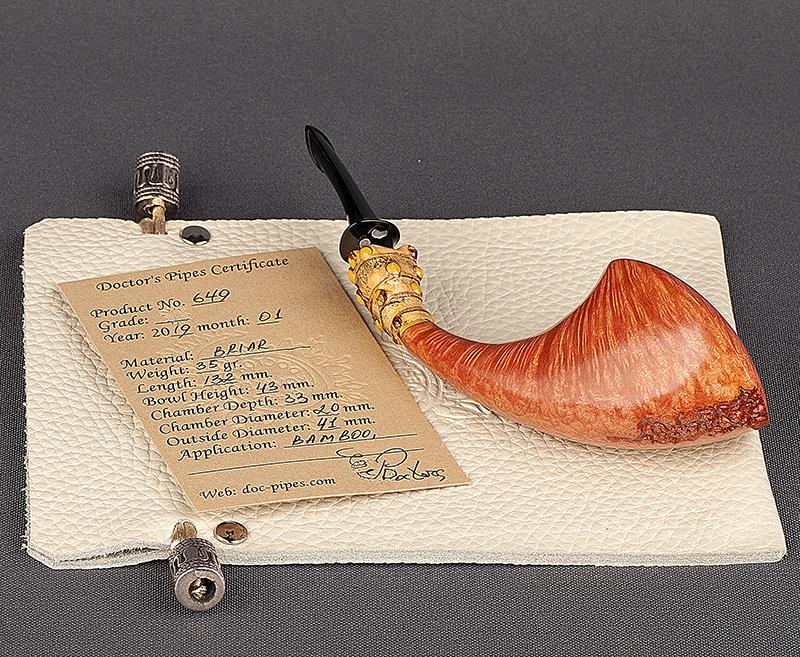 Doctor's Pipes Certificate
Product No. 649
Grade:
Year: 2019 month: 01
Material: BRIAR
Weight: 35 gr.
Length: 132 mm.
Bowl Height: 43 mm.
Chamber Depth: 33 mm.
Chamber Diameter: 20 mm.
Outside Diameter: 41 mm.
Application: BAMBOO,
Web: doc-pipes.com